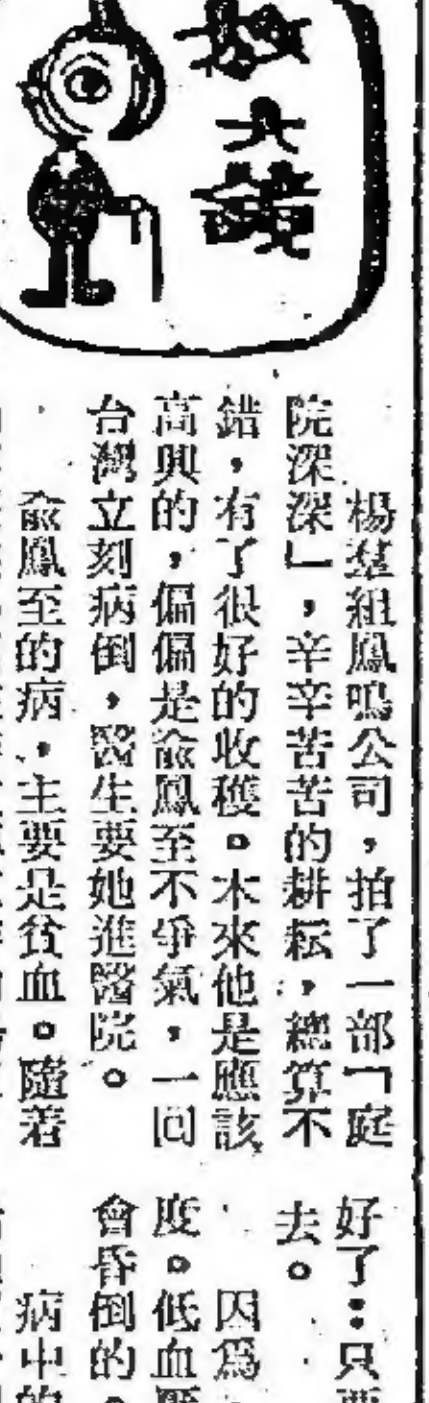 放大鏡
楊羣組鳳鳴公司,拍了一部「庭
院深深」,辛辛苦苦的耕耘,總算不
錯,有了很好的收穫。本來他是應該
高興的,偏偏是俞鳳至不爭氣,一回
台灣立刻病倒,醫生要她進醫院。
俞鳳至的病,主要是貧血。隨着
好了:只要
去。
因爲
度。低血壓
會昏倒的。
病中的